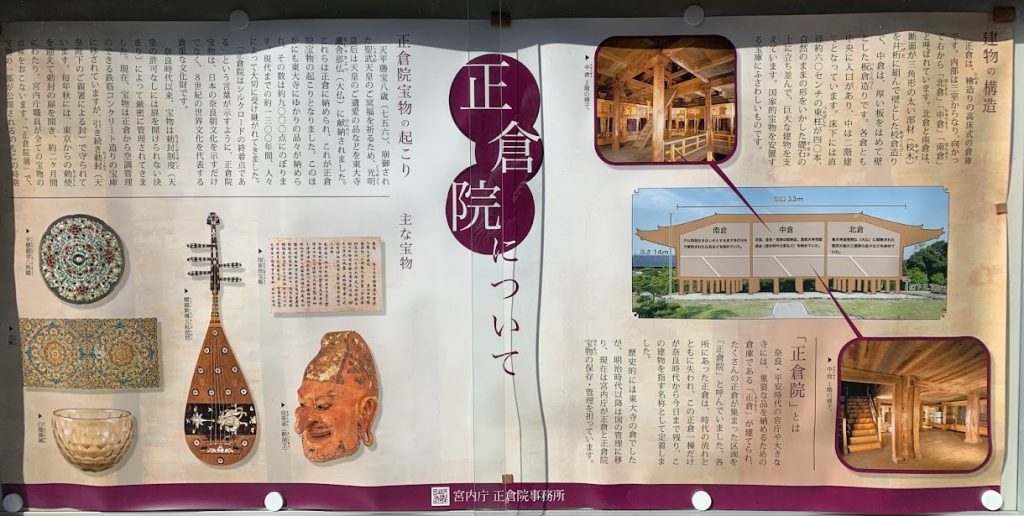 正倉院について
建物の構造
正倉は、檜造りの高床式の倉庫
です。内部は三字からなり、向かっ
て右から「北倉」「中倉」「南倉」
と呼ばれています。北倉と南倉は、
断面が三角形の太い部材（校木）
を井桁に組み上げて壁とした校倉造り
で、中倉は、厚い板をはめて壁
とした板倉造りです。各倉とも
中央に入口があり、中は二階建
てとなっています。床下には直
径約六〇センチの束柱が四〇本、
自然のままの形をいかした礎石の
上に立ち並んで、巨大な建物を支
えています。国家的宝物を安置す
る宝庫にふさわしいものです。
中倉2階の様子。
間口 33m
高さ 14m
南倉
中倉
北倉
「正倉院」とは
奈良・平安時代の官庁や大きな
寺には、重要な品を納めるための
倉庫である「正倉」が建てられ、
たくさんの正倉が集まった区画を
「正倉院」と呼んでいました。各
所にあった正倉は、時代の流れと
ともに失われ、この正倉一棟だけ
が奈良時代から今日まで残り、こ
の建物を指す名称として定着しま
した。
歴史的には東大寺の倉でした
が、明治時代以降は国の管理に移
り、現在は宮内庁が正倉と正倉院
宝物の保存・管理を担っています。
中倉1階の様子。
正倉院宝物の起こり
天平勝宝八歳（七五六）、崩御され
た聖武天皇のご冥福を祈るため、光明
皇后は天皇のご遺愛の品などを東大寺
盧舎那仏（大仏）に献納されました。
これらは正倉に納められ、これが正倉
院宝物の起こりとなりました。このほ
かにも東大寺にゆかりの品々が納めら
れ、その数は約九〇〇〇点にのぼりま
す。現代までの約一三〇〇年間、人々
によって大切に受け継がれてきました。
「正倉院はシルクロードの終着点であ
る」という言葉が示すように、正倉院
宝物は、日本の奈良朝文化を示すだけ
でなく、8世紀の世界文化を代表する
貴重な文化財です。
奈良時代以来、宝物は勅封制度（天
皇の許可なしには扉を開けられない決
まり）によって厳密に管理されてきま
した。現在、宝物は正倉から空調管理
のできる鉄筋コンクリート造りの宝庫
に移されていますが、引き続き勅封（天
皇陛下のご署名による封）で守られて
います。毎年秋には、東京からの勅使
を迎えて勅封の扉を開き、約二ヶ月間
にわたり、宮内庁職員が全ての宝物の
点検をおこないます。「正倉院展」で、
宝物の一部が公開されるのもこの時期
主な宝物
宮内庁 正倉院事務所